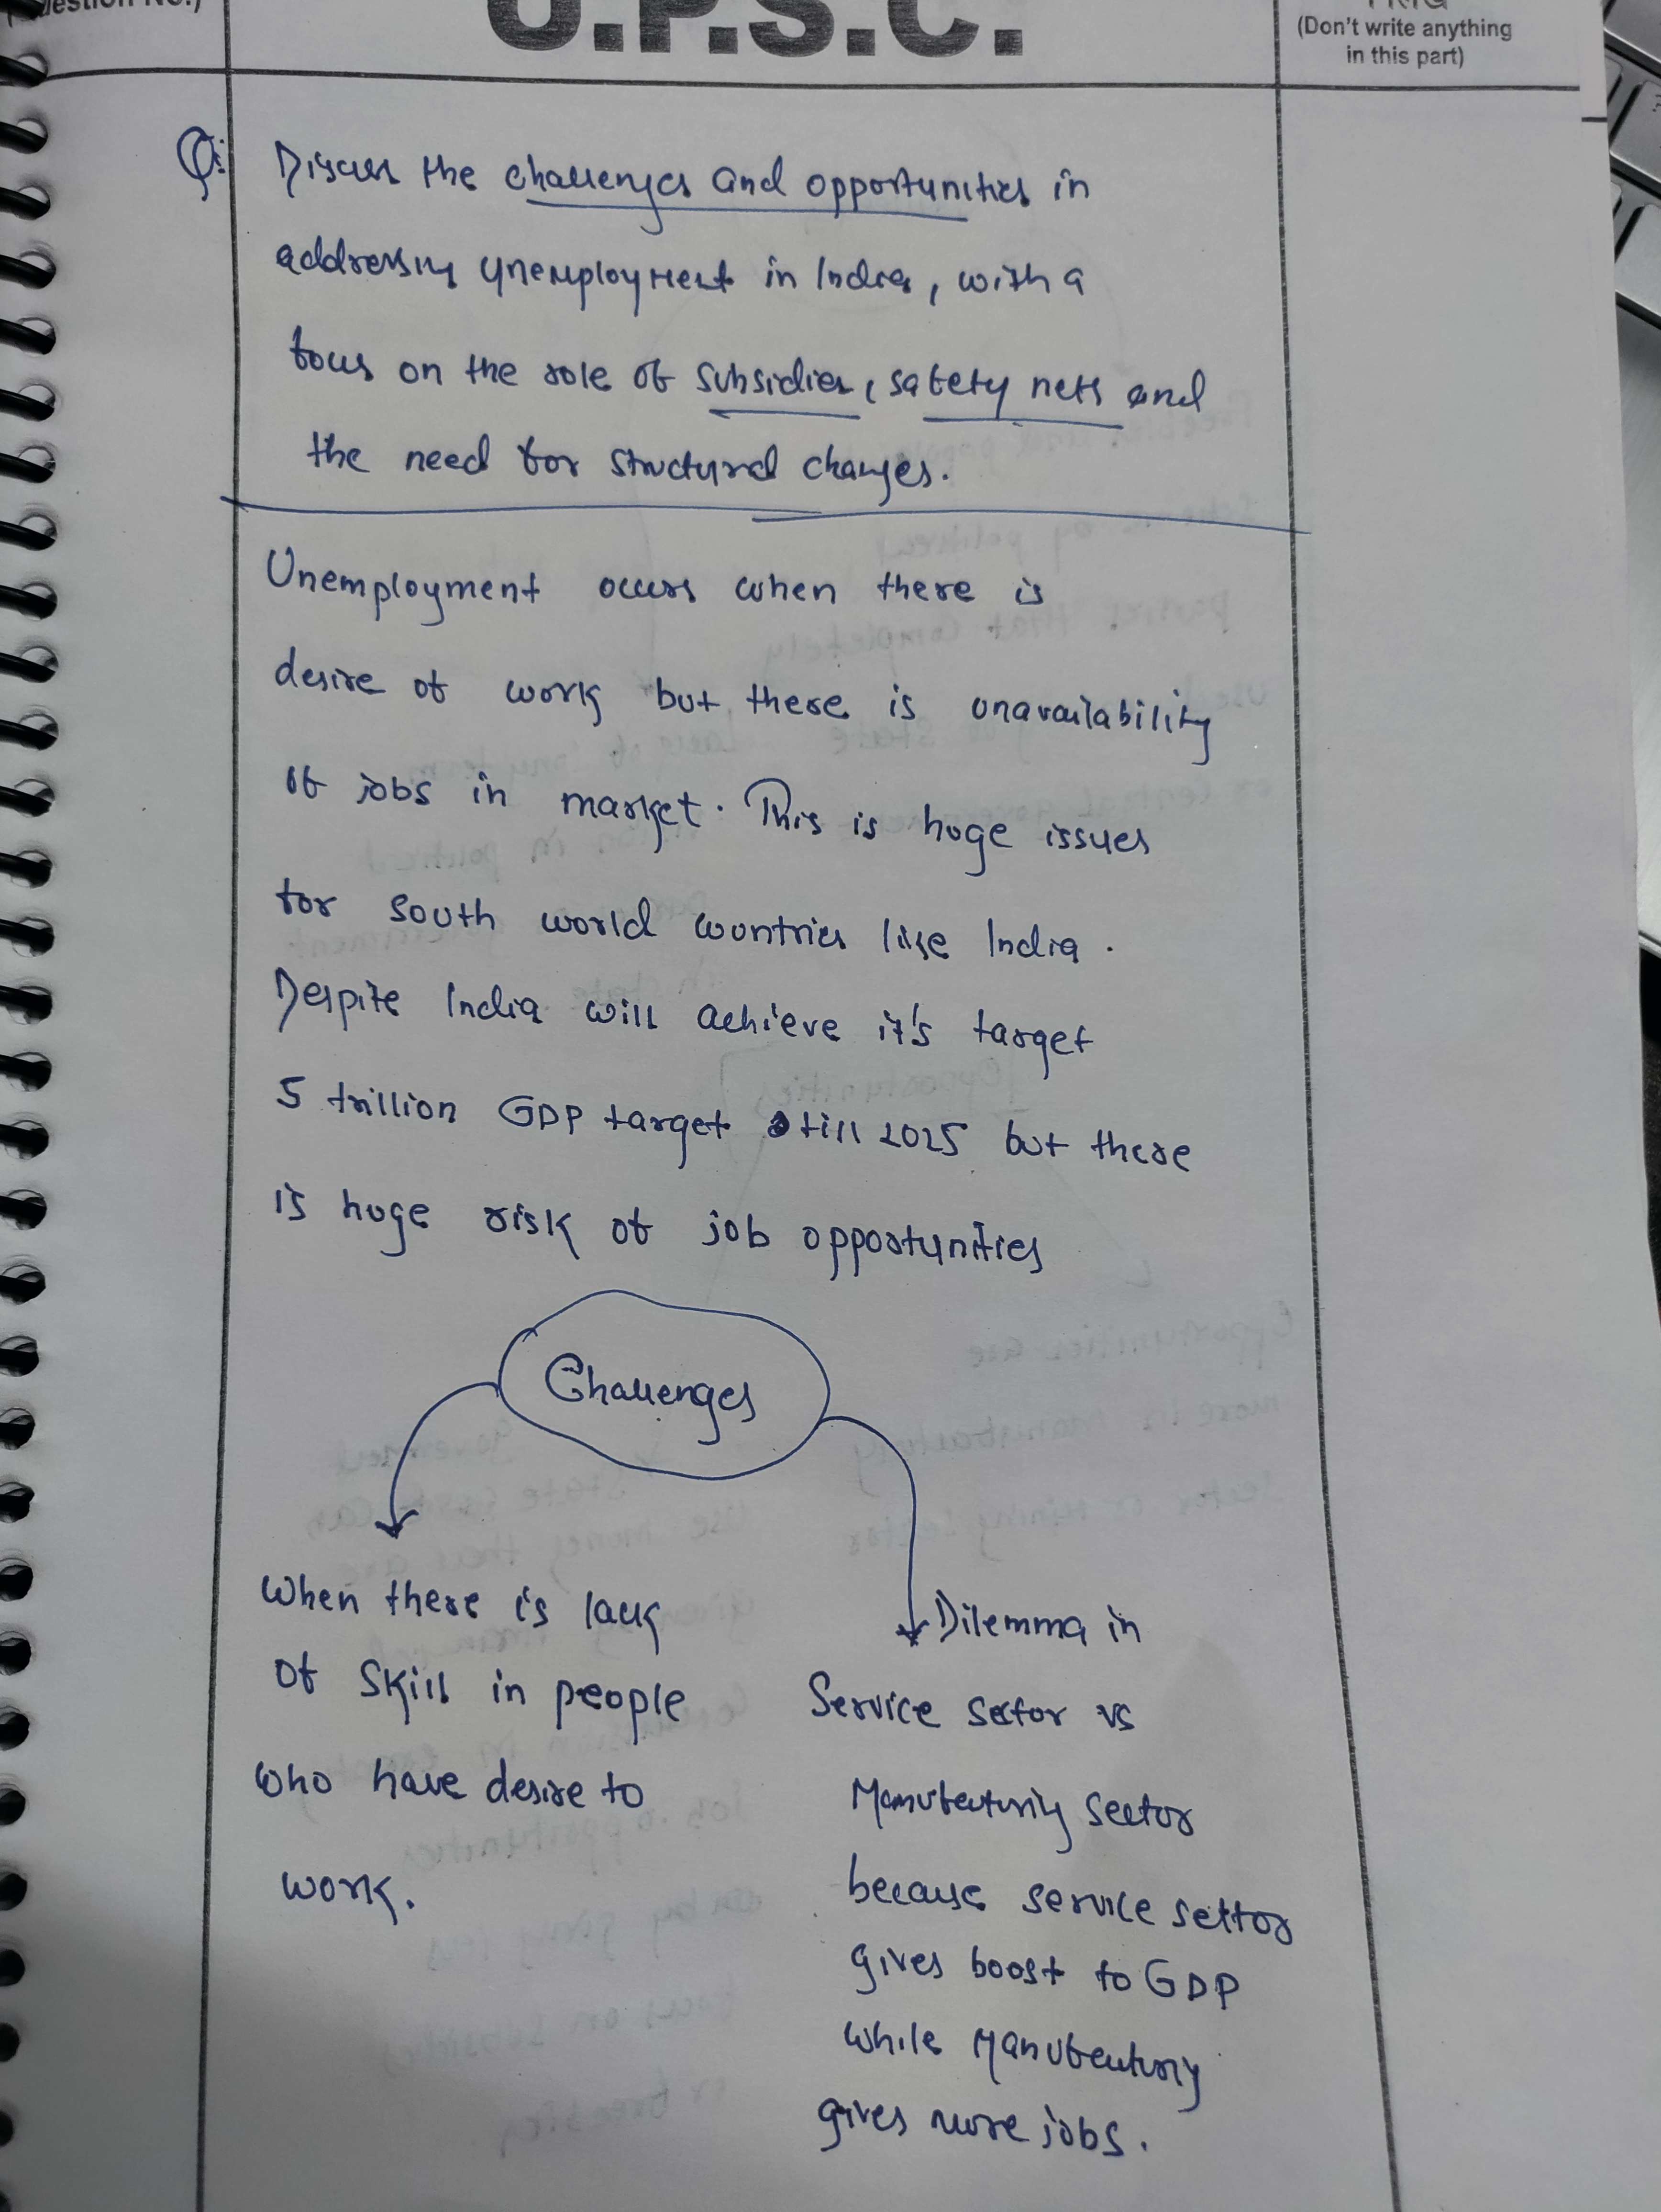 U.P.S.C.
(Don't write anything
in this part)
Q: Discuss the challenges and opportunities in
addressing unemployment in India, with a
focus on the role of subsidies, safety nets and
the need for structural changes.
Unemployment occurs when there is
desire of work but there is unavailability
of jobs in market. This is huge issues
for south world countries like India.
Despite India will achieve it's target
5 trillion GDP target till 2025 but there
is huge risk of job opportunities
Challenges
When there is lack
of skill in people
who have desire to
work.
Dilemma in
Service sector vs
Manufacturing sector
because service sector
gives boost to GDP
while Manufacturing
gives more jobs.